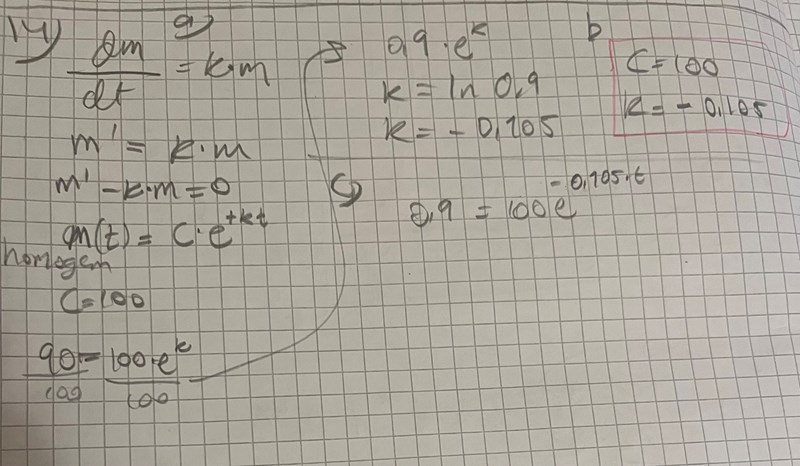 14) a)
dm/dt = k·m
m' = k·m
m' - k·m = 0
m(t) = C·e^+kt
homogen
C=100
90/100 = 100·e^k/100
0,9·e^k
k = ln 0,9
k = -0,105
b
C=100
k = -0,105
c)
0,9 = 100e^-0,105·t